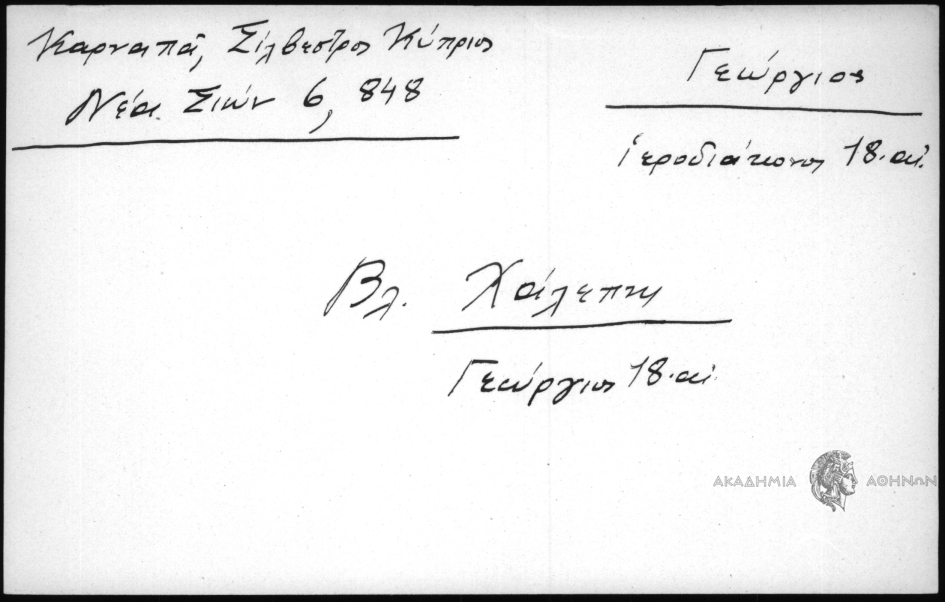 Καρναπᾶ, Σίλβεστρος Κύπριος
Νέα Σιών 6, 848
Γεώργιος
ἱεροδιάκονος 18. αἰ.
Βλ. Χάλεπλη
Γεώργιος 18. αἰ.
ΑΚΑΔΗΜΙΑ ΑΘΗΝΩΝ